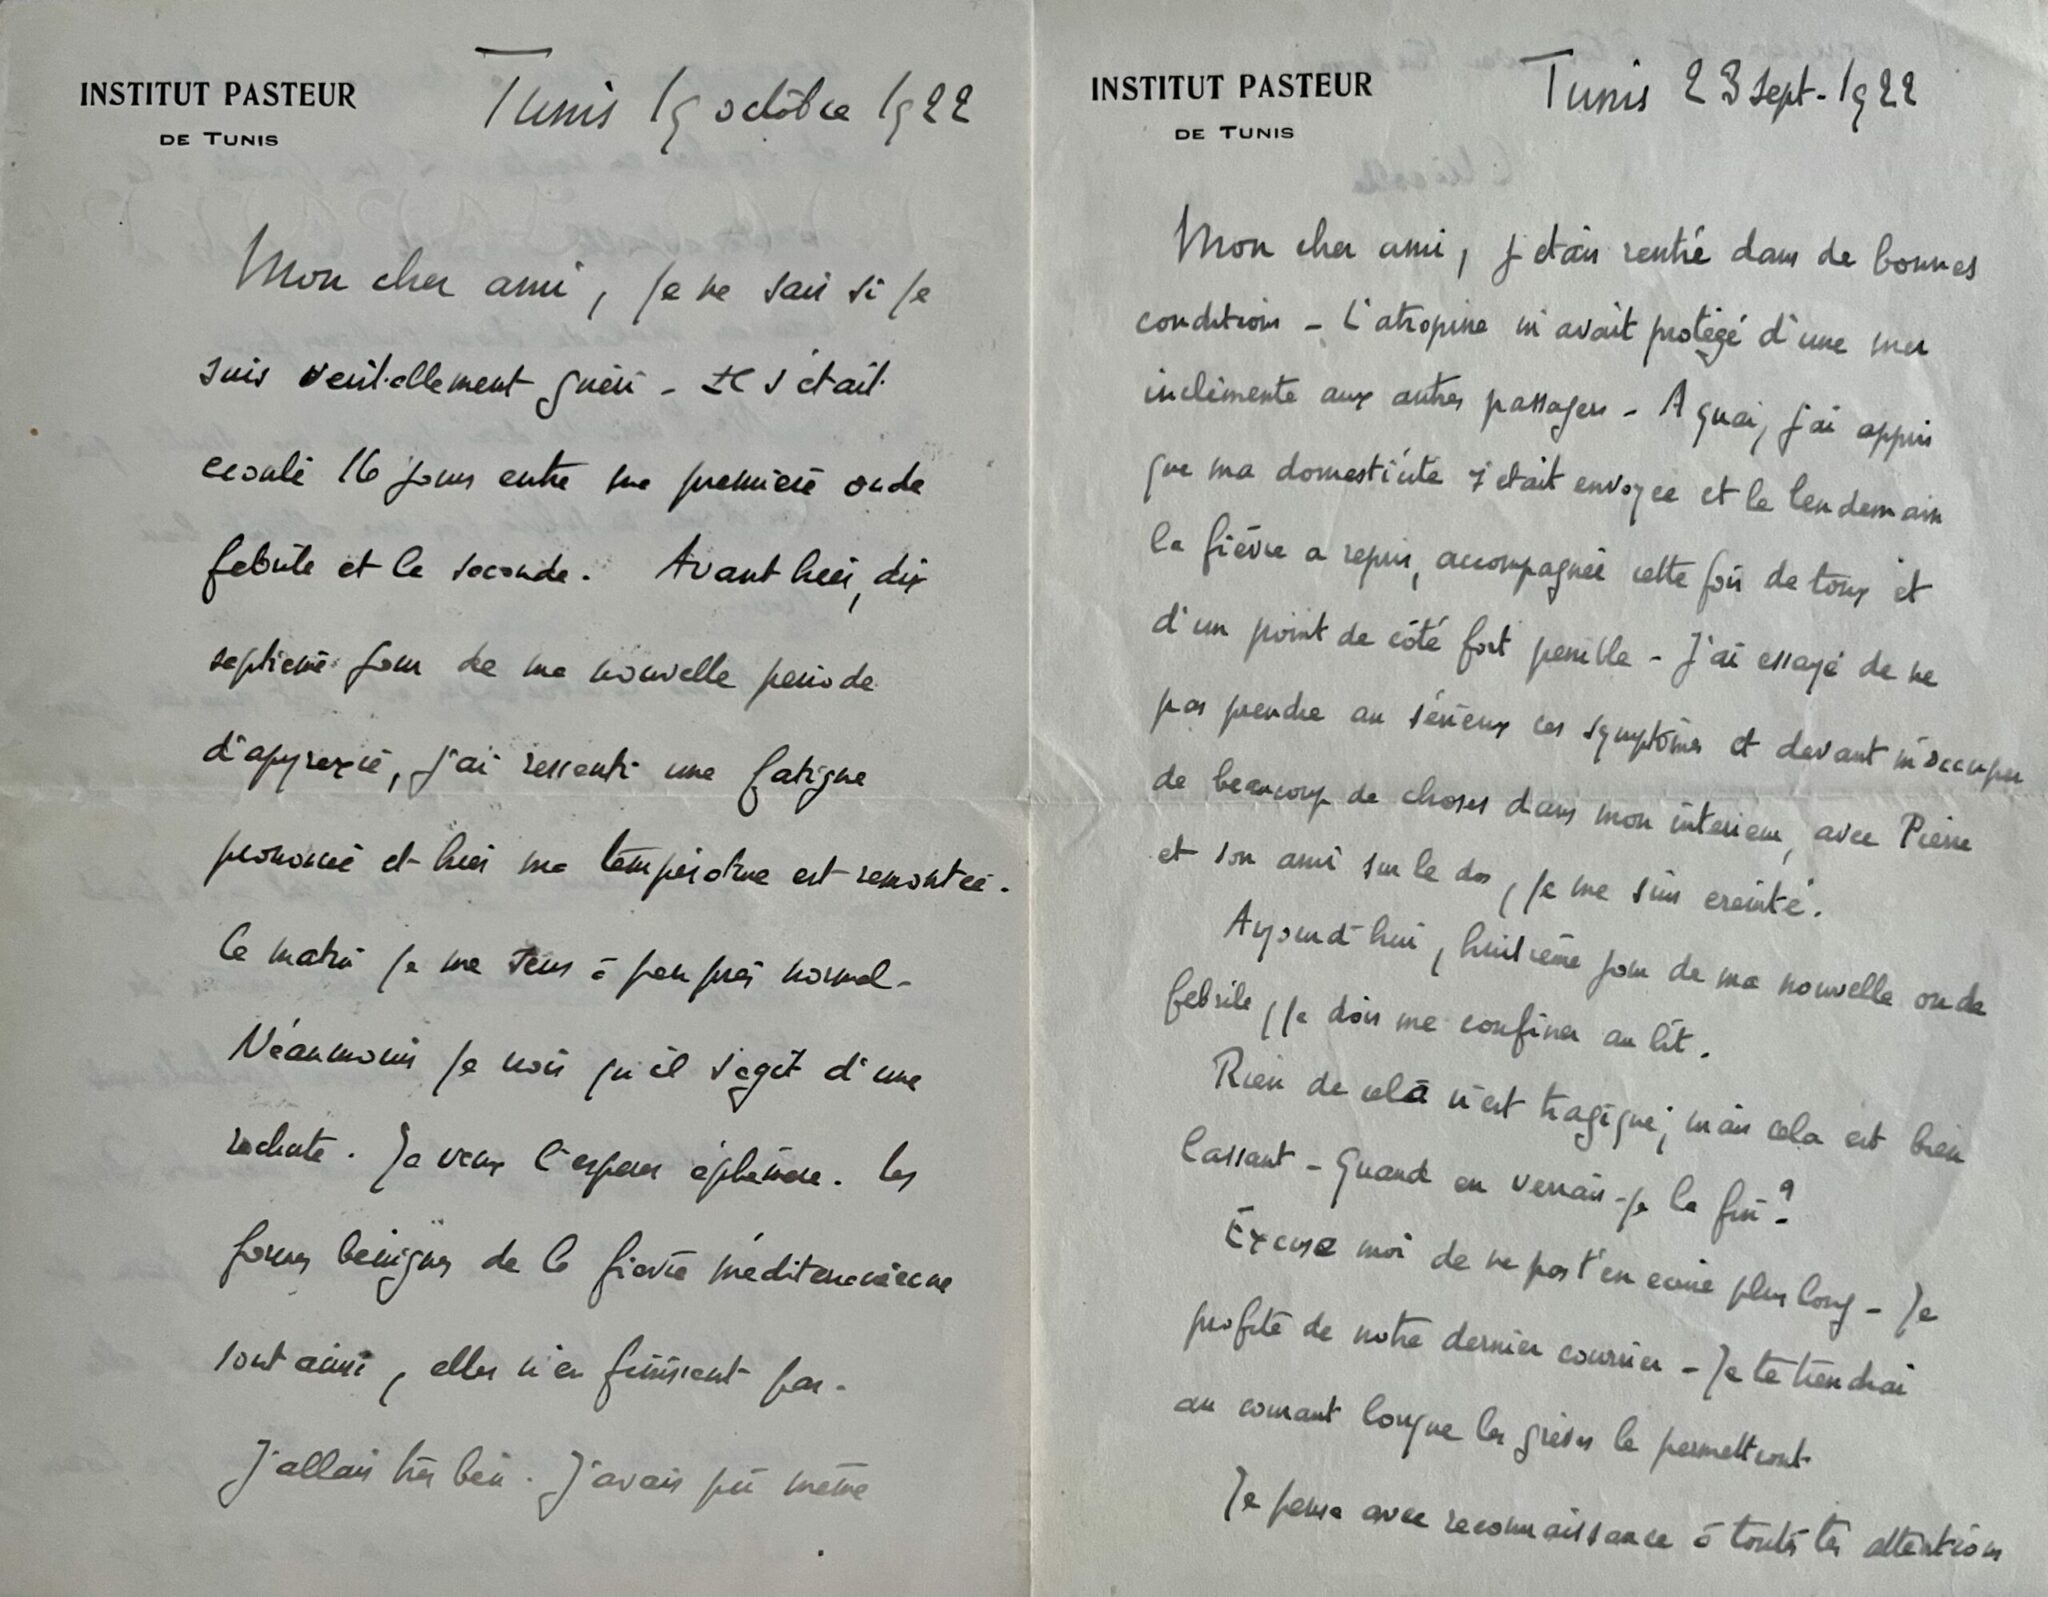 INSTITUT PASTEUR
DE TUNIS
Tunis 19 octobre 1922
Mon cher ami, je ne sais si je
suis réellement guéri - Il s'était
écoulé 16 jours entre ma première onde
fébrile et la seconde. Avant hier, dix
septième jour de ma nouvelle période
d'apyrexie, j'ai ressenti une fatigue
prononcée et hier ma température est remontée.
Ce matin je me sens à peu près normal -
Néanmoins je vois qu'il s'agit d'une
rechute. Je veux l'espérer éphémère. Les
formes bénignes de la fièvre méditerranéenne
sont ainsi, elles n'en finissent pas -
J'allais très bien. J'avais pu même
INSTITUT PASTEUR
DE TUNIS
Tunis 23 sept - 1922
Mon cher ami, j'étais rentré dans de bonnes
conditions - L'atropine m'avait protégé d'une mer
inclémente aux autres passagers - A quai, j'ai appris
que ma domesticité s'était envoyée et le lendemain
la fièvre a repris, accompagnée cette fois de toux et
d'un point de côté fort pénible - J'ai essayé de ne
pas prendre au sérieux ces symptômes et devant m'occuper
de beaucoup de choses dans mon intérieur, avec Pierre
et son ami sur le dos, je me suis éreinté.
Aujourd'hui, huitième jour de ma nouvelle onde
fébrile, je dois me confiner au lit.
Rien de celà n'est tragique; mais cela est bien
lassant - Quand en verrai-je la fin?
Excuse moi de ne pas t'en écrire plus long - Je
profite de notre dernier courrier - Je te tiendrai
au courant lorsque les grèves le permettront
Je pense avec reconnaissance à toutes tes attentions